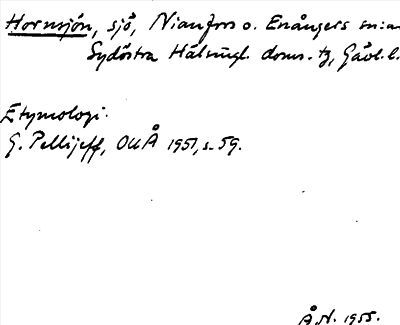 Hornsjön, sjö, Nianfors o. Enångers sn:ar
Sydöstra Hälsingl. doms. tg, Gävl. l.
Etymologi.
G. Pellijeff, OUÅ 1951, s. 59.
Å.N. 1955.